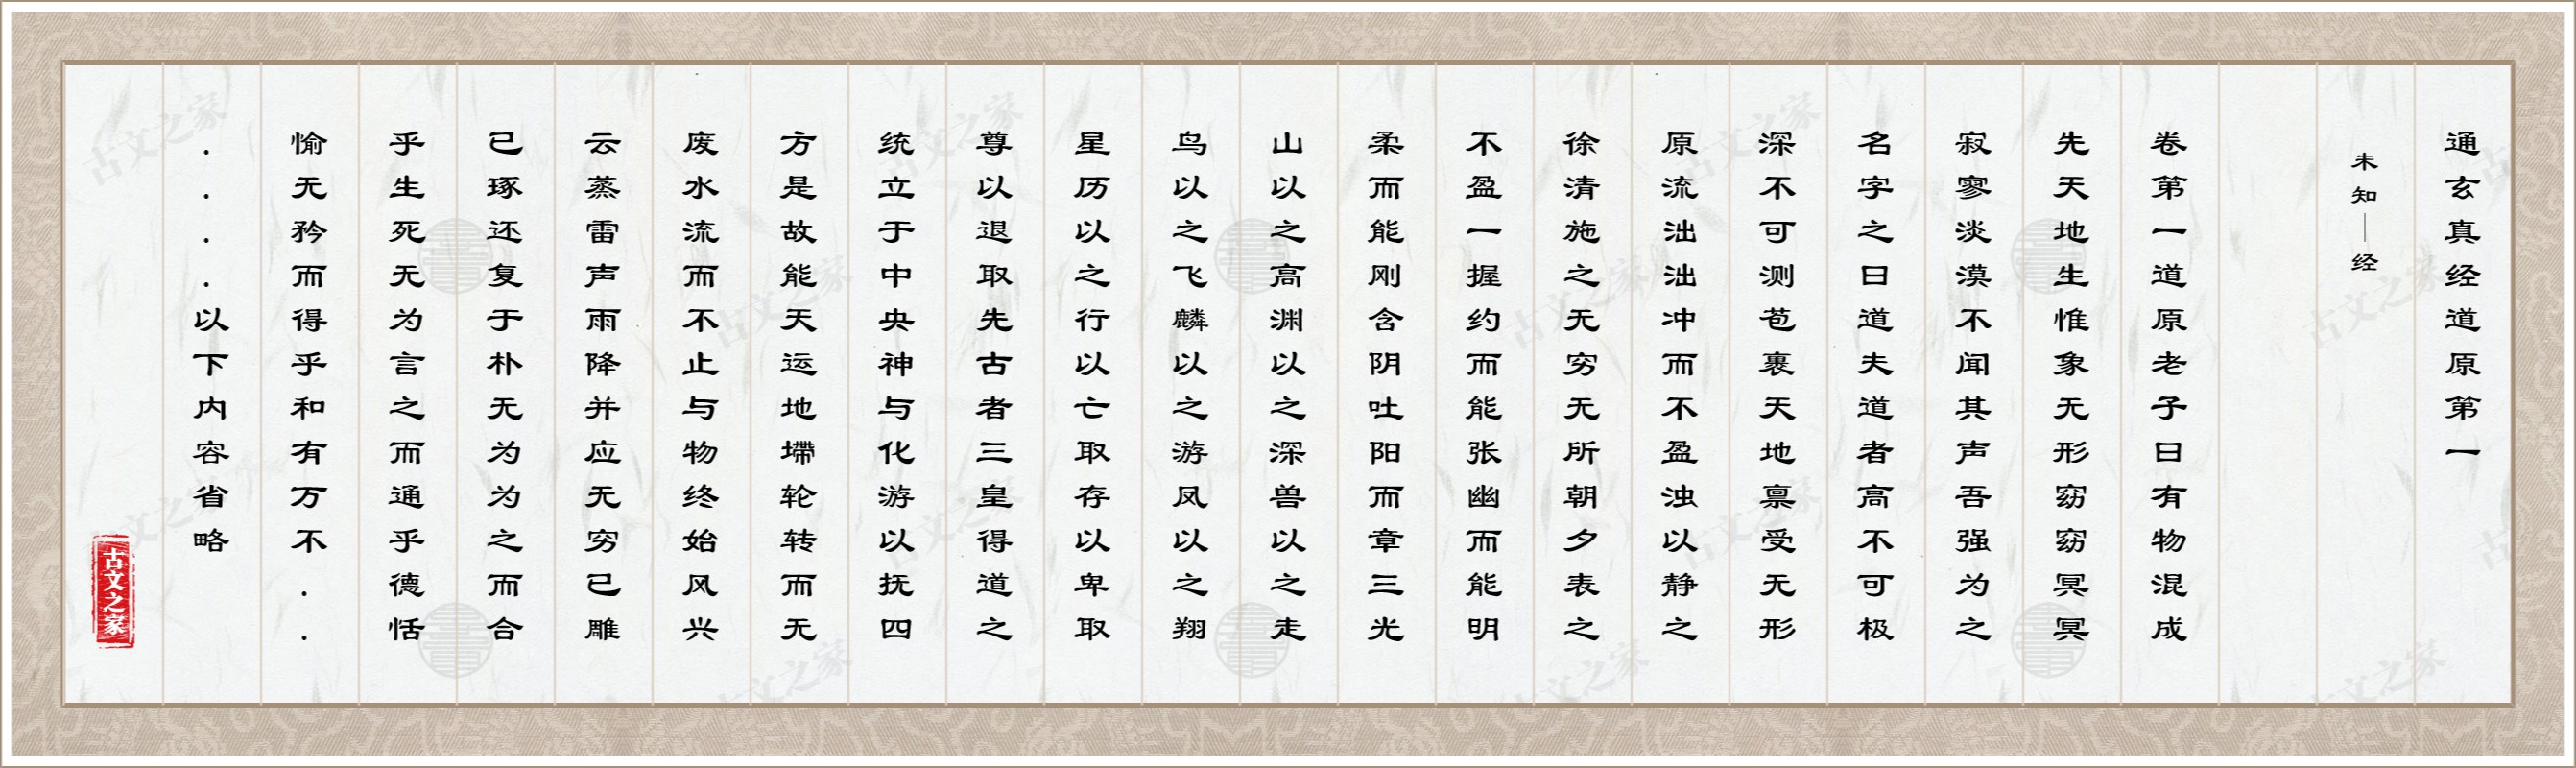 通玄真经道原第一
未知｜经
卷第一道原老子曰有物混成
先天地生惟象无形窈窈冥冥
寂寥淡漠不闻其声吾强为之
名字之曰道夫道者高不可极
深不可测苞裹天地禀受无形
原流泏泏冲而不盈浊以静之
徐清施之无穷无所朝夕表之
不盈一握约而能张幽而能明
柔而能刚含阴吐阳而章三光
山以之高渊以之深兽以之走
鸟以之飞麟以之游凤以之翔
星历以之行以亡取存以卑取
尊以退取先古者三皇得道之
统立于中央神与化游以抚四
方是故能天运地墆轮转而无
废水流而不止与物终始风兴
云蒸雷声雨降并应无穷已雕
已琢还复于朴无为为之而合
乎生死无为言之而通乎德恬
愉无矜而得乎和有万不..
....以下内容省略
古文之家